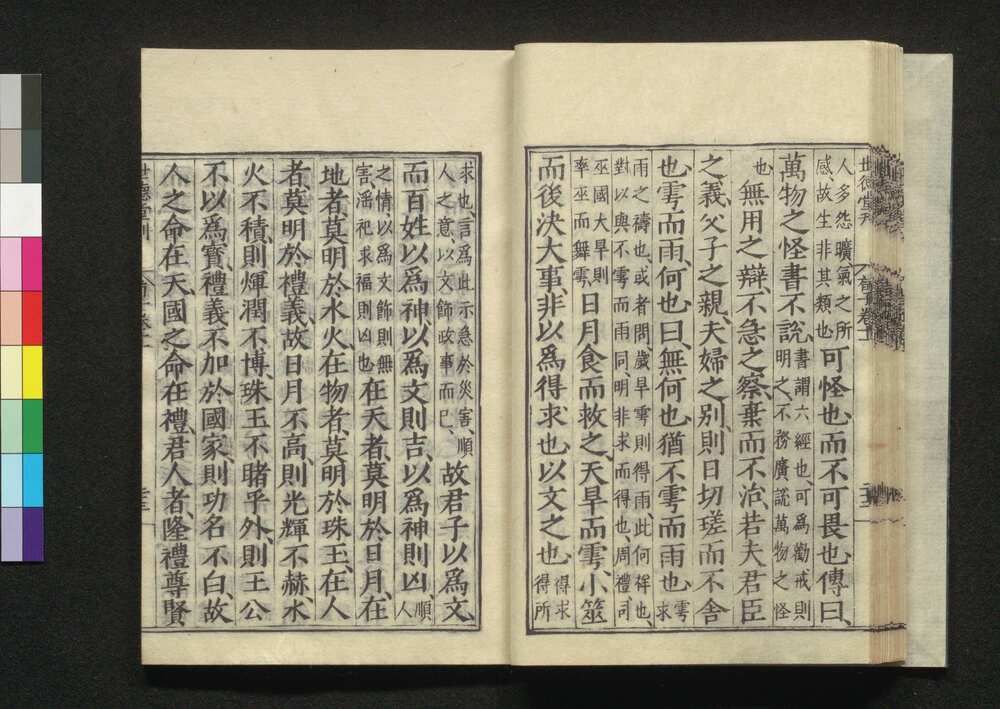 人多怨曠氣之所
感故生非其類也可怪也而不可畏也傳曰
萬物之怪書不説書謂六經也可爲勸戒則
明之不務廣説萬物之怪
也無用之辯不急之察棄而不治若夫君臣
之義父子之親夫婦之別則日切瑳而不舍
也雩而雨何也曰無何也猶不雩而雨也雩求
雨之禱也或者問歲旱雩則得雨此何祥也
對以與不雩而雨同明非求而得也周禮司
巫國大旱則
率巫而舞雩日月食而救之天旱而雩卜筮
而後決大事非以爲得求也以文之也得求
得所
求也言爲此示急於災害順
人之意以文飾政事而已故君子以爲文
而百姓以爲神以爲文則吉以爲神則凶順人
之情以爲文飾則無
害淫祀求福則凶也在天者莫明於日月在
地者莫明於水火在物者莫明於珠玉在人
者莫明於禮義故日月不高則光輝不赫水
火不積則煇潤不博珠玉不睹乎外則王公
不以爲寶禮義不加於國家則功名不白故
人之命在天國之命在禮君人者隆禮尊賢
世德堂刊